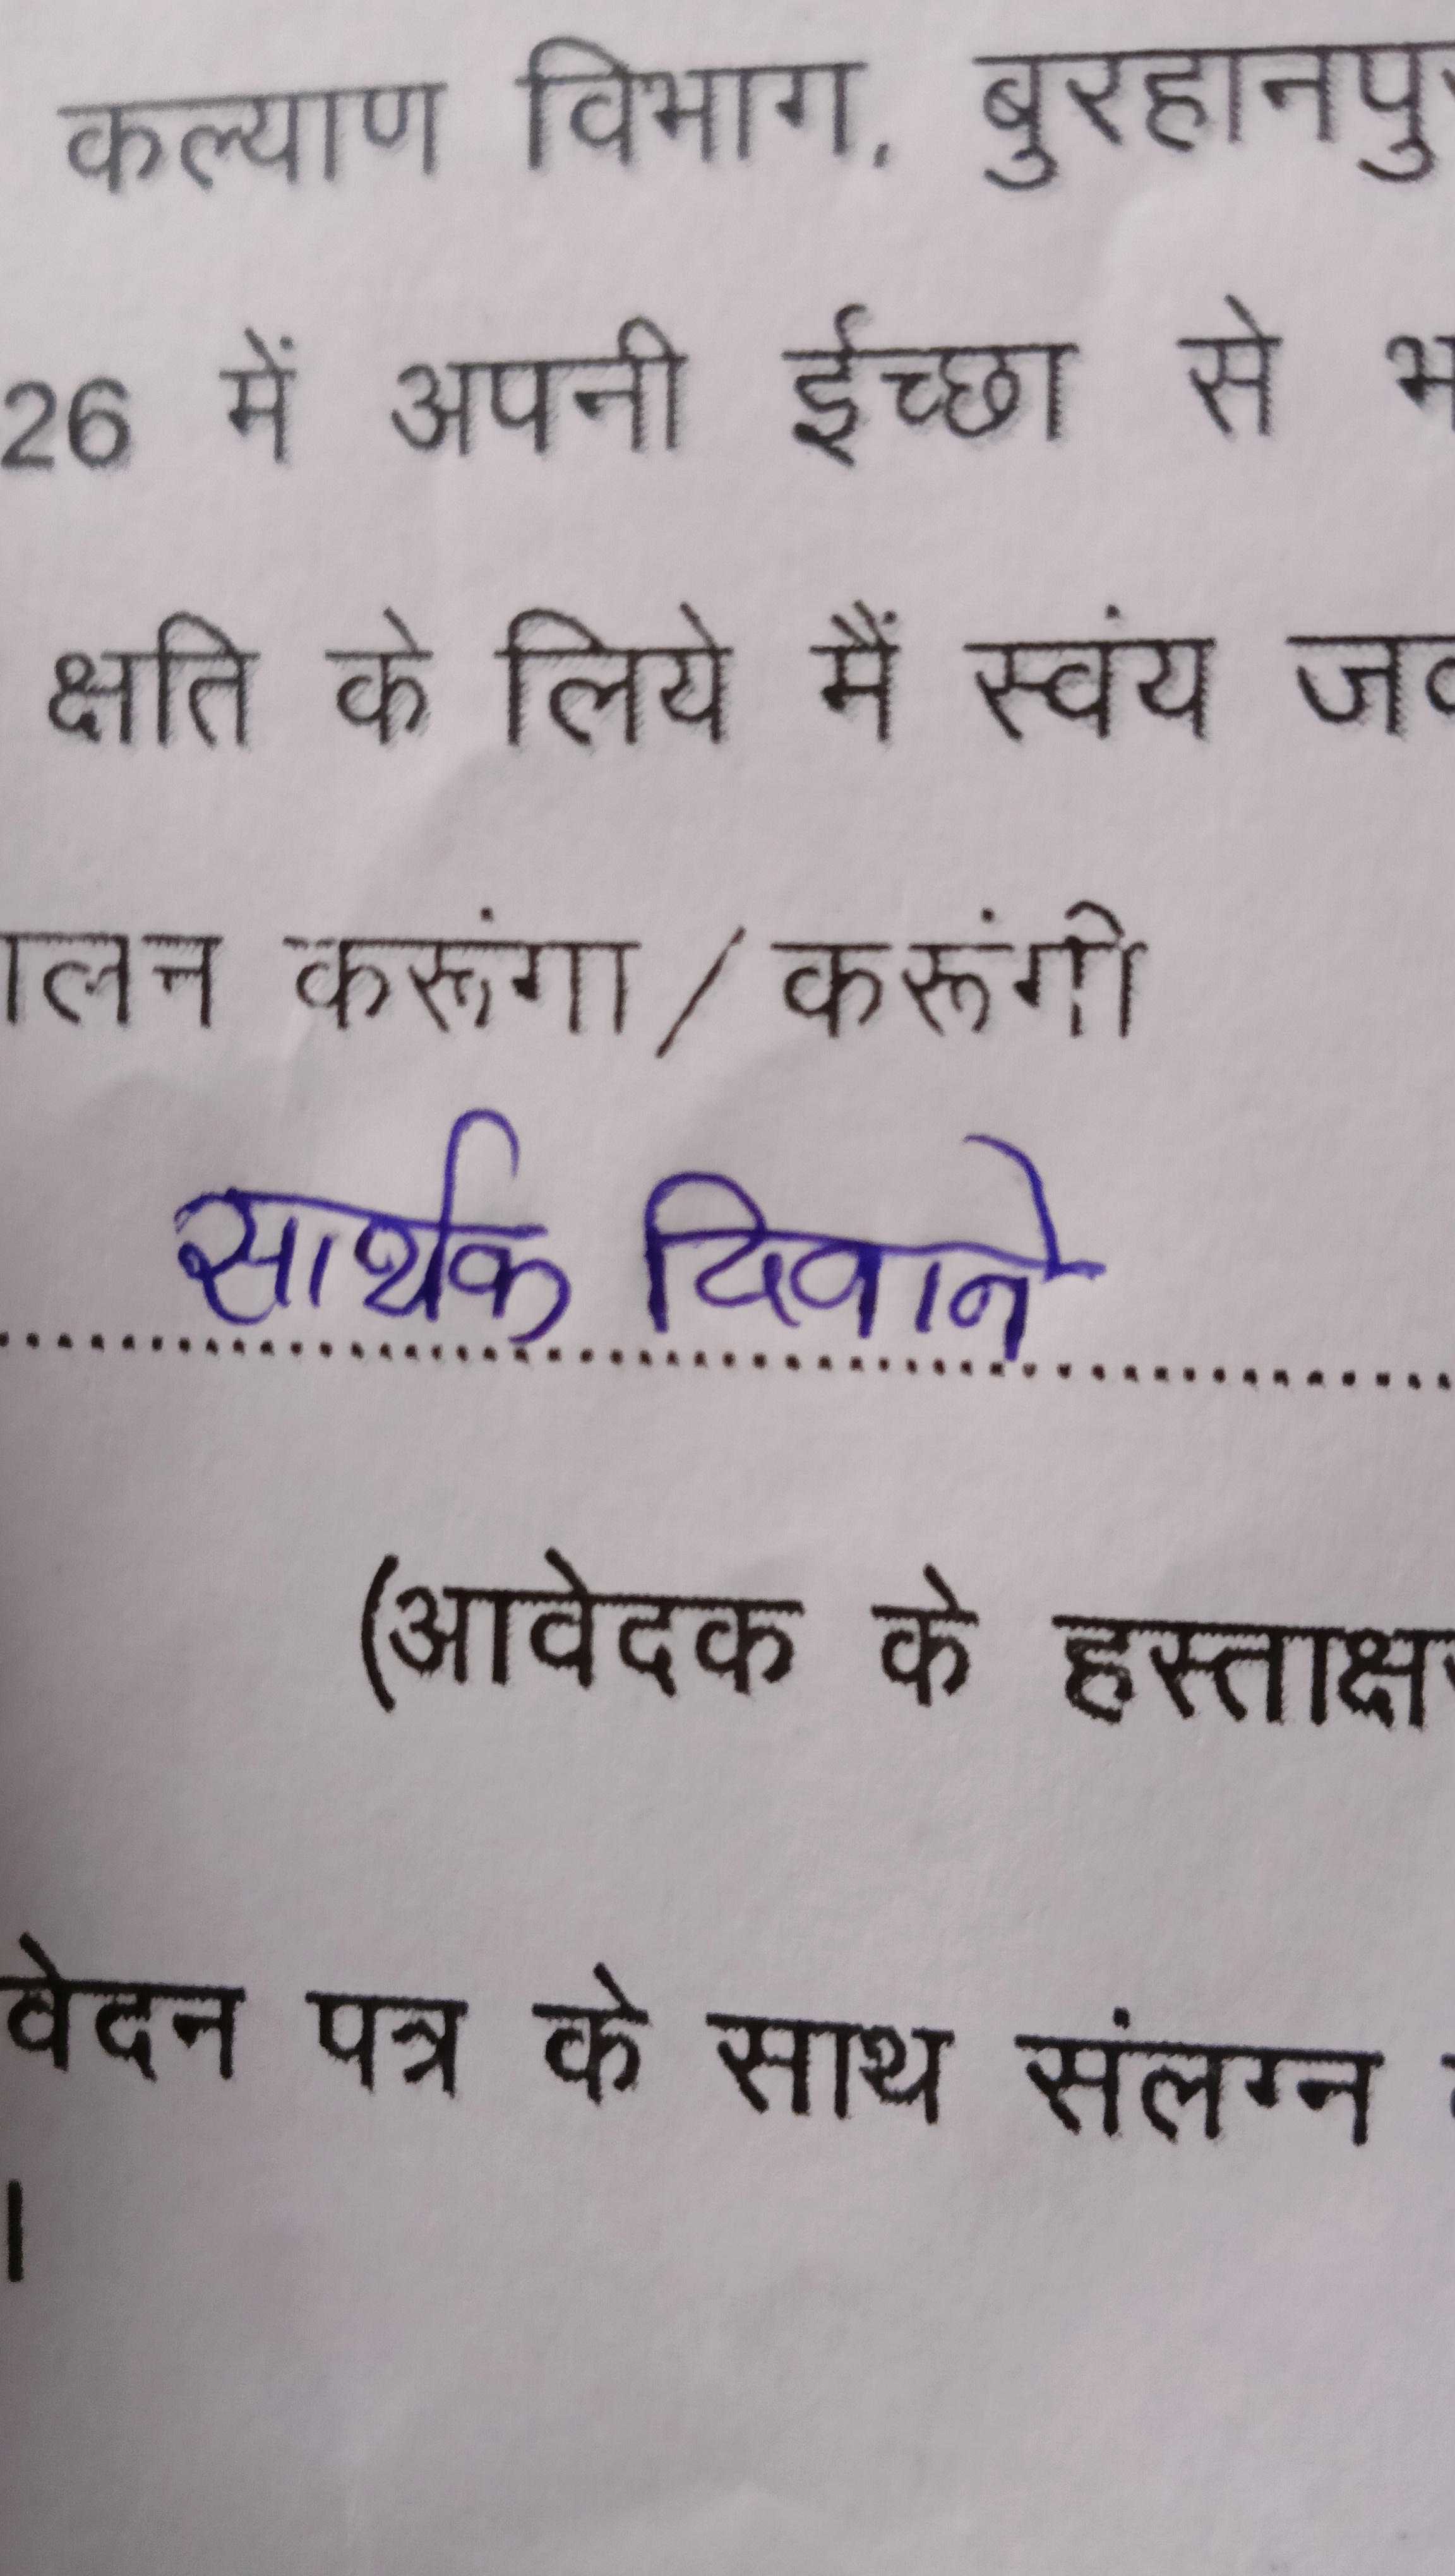 कल्याण विभाग, बुरहानपु
26 में अपनी ईच्छा से भ
क्षति के लिये मैं स्वंय जव
ालन करूंगा / करूंगी
सार्थक दिवाने
(आवेदक के हस्ताक्षर
वेदन पत्र के साथ संलग्न
।